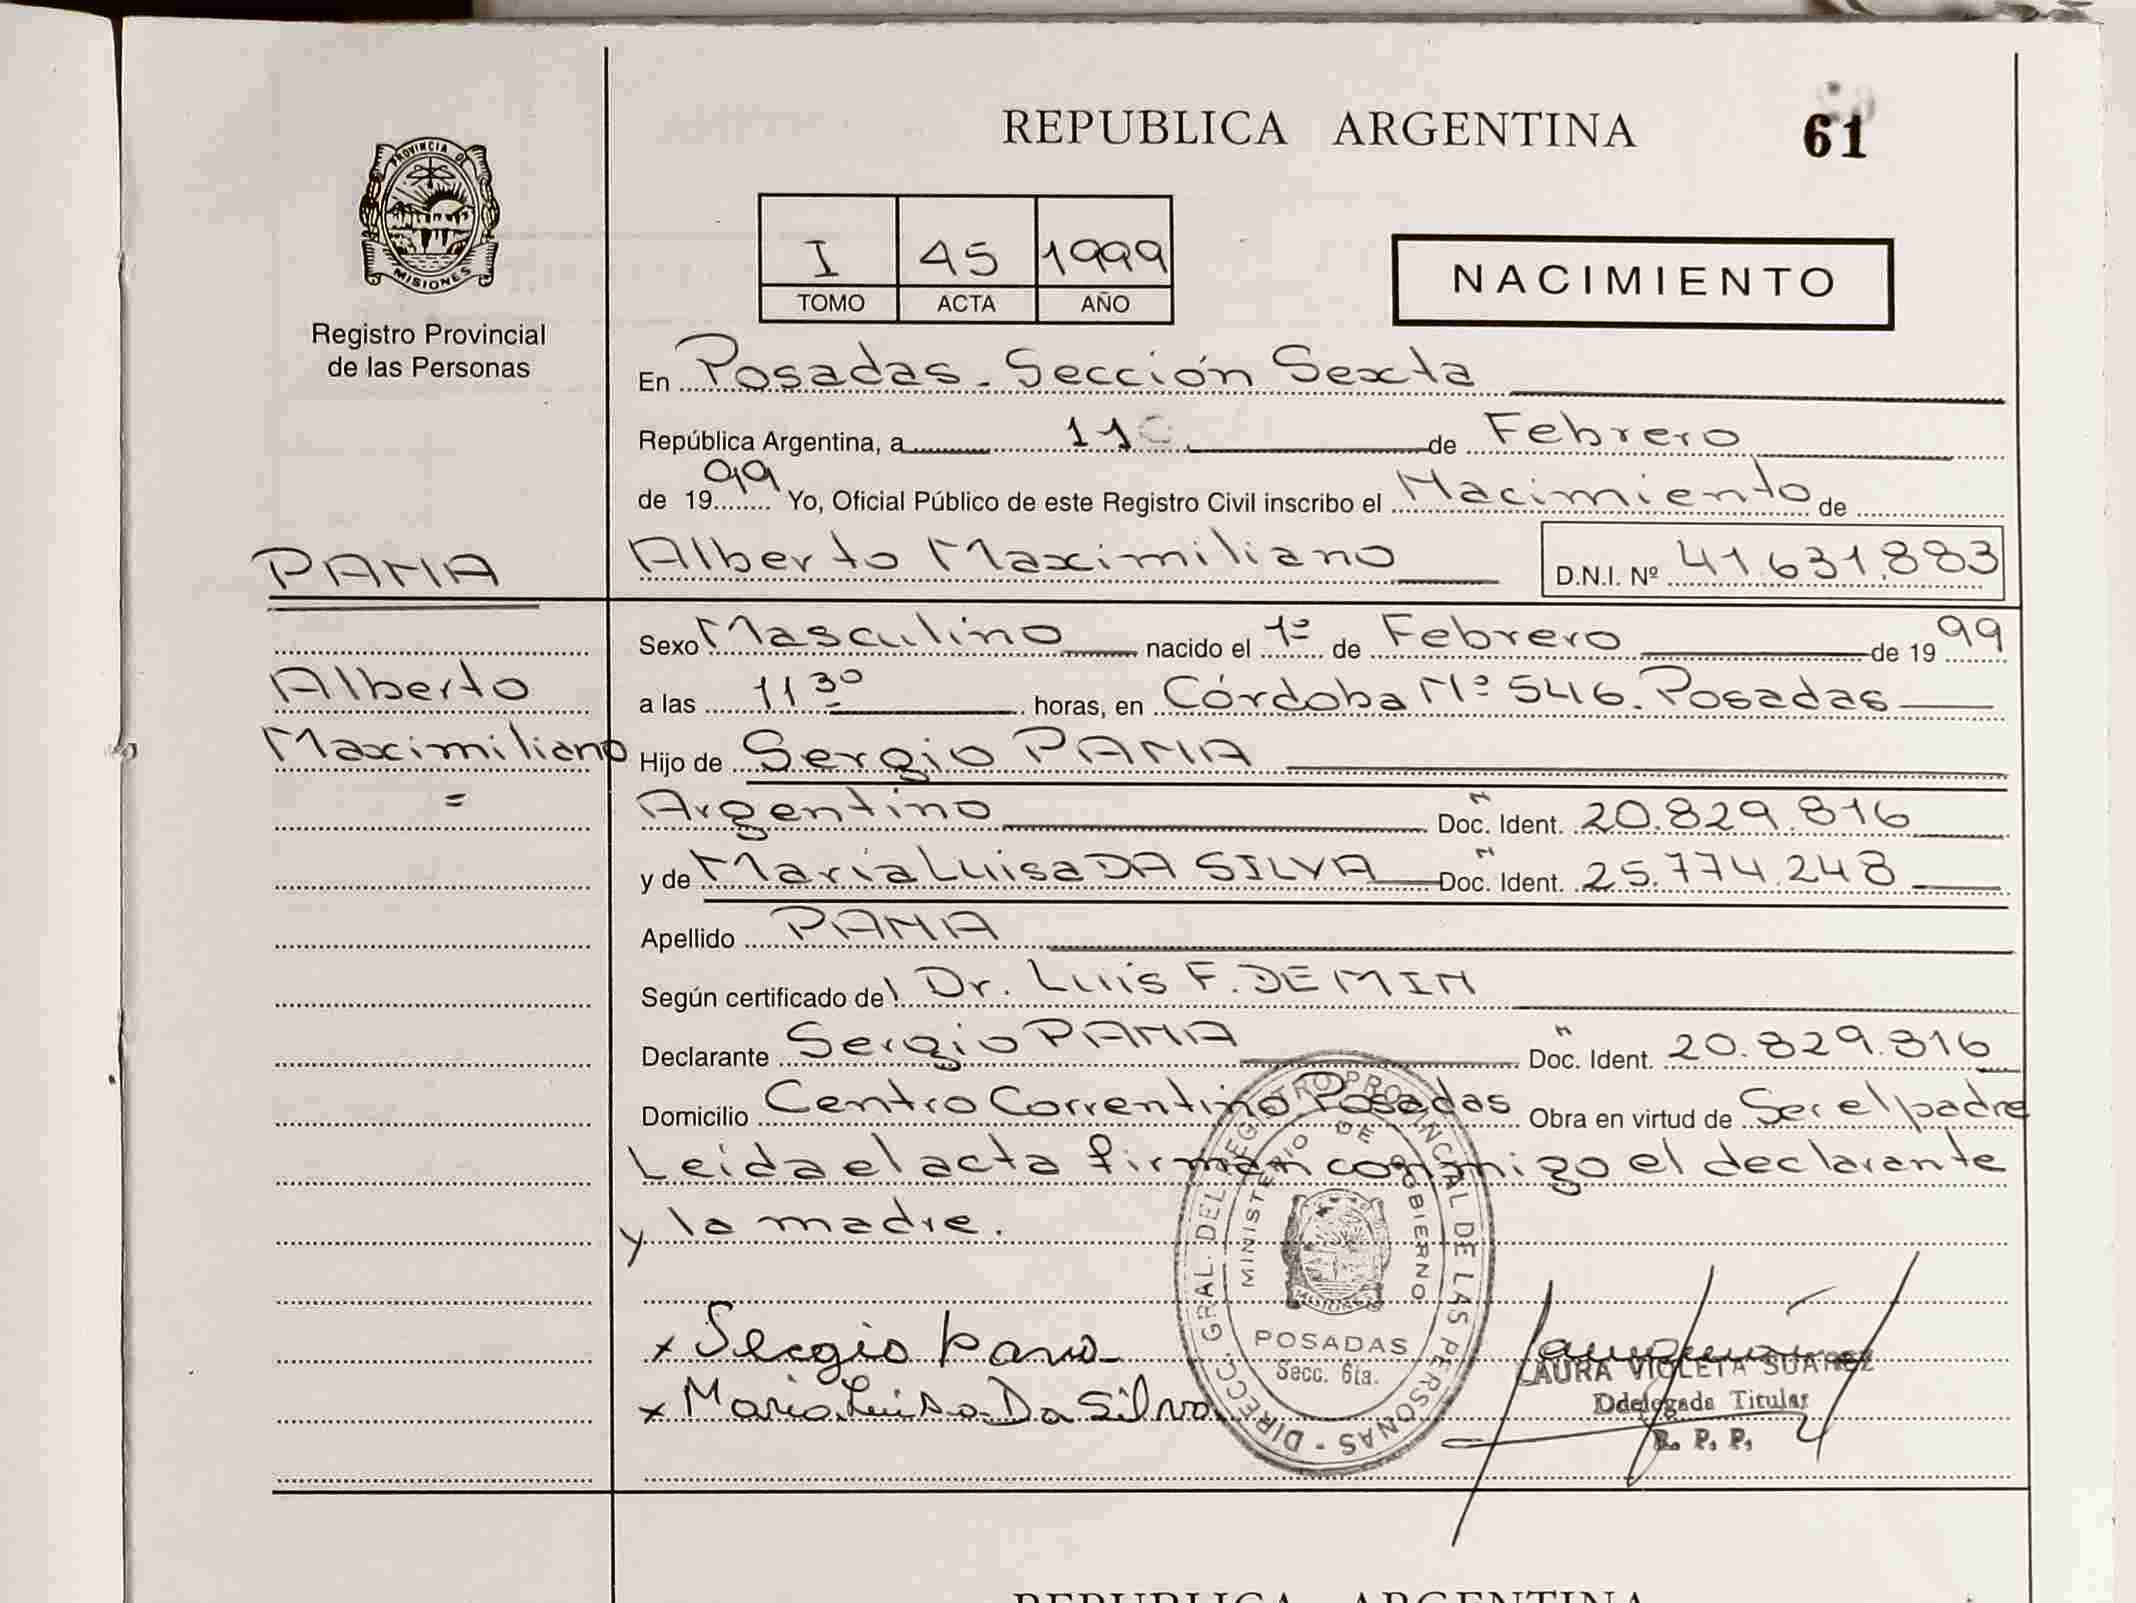 REPUBLICA ARGENTINA
61
PROVINCIA DE
MISIONES
Registro Provincial
de las Personas
I 45 1999
TOMO ACTA AÑO
NACIMIENTO
En Posadas. Sección Sexta
República Argentina, a 11 de Febrero
de 1999 Yo, Oficial Público de este Registro Civil inscribo el Nacimiento de
PANA
Alberto Maximiliano D.N.I. Nº 41.631.883
Sexo Masculino nacido el 1º de Febrero de 1999
Alberto
a las 11 30 horas, en Córdoba Nº 546. Posadas
Maximiliano
Hijo de Sergio PANA
=
Argentino Doc. Ident. 20.829.816
y de María Luisa DA SILVA Doc. Ident. 25.774.248
Apellido PANA
Según certificado del Dr. Luis F. DEMIN
Declarante Sergio PANA Doc. Ident. 20.829.816
Domicilio Centro Correntino Posadas Obra en virtud de Ser el padre
Leida el acta firman conmigo el declarante
y la madre.
x Sergio Pana
x Maria Luisa Da Silva
DIRECC. GRAL. DEL REGISTRO PROVINCIAL DE LAS PERSONAS -
MINISTERIO DE GOBIERNO
MISIONES
POSADAS
Secc. 6ta.
LAURA VIOLETA SUAREZ
Ddelegada Titular
R. P. P.
REPUBLICA ARGENTINA